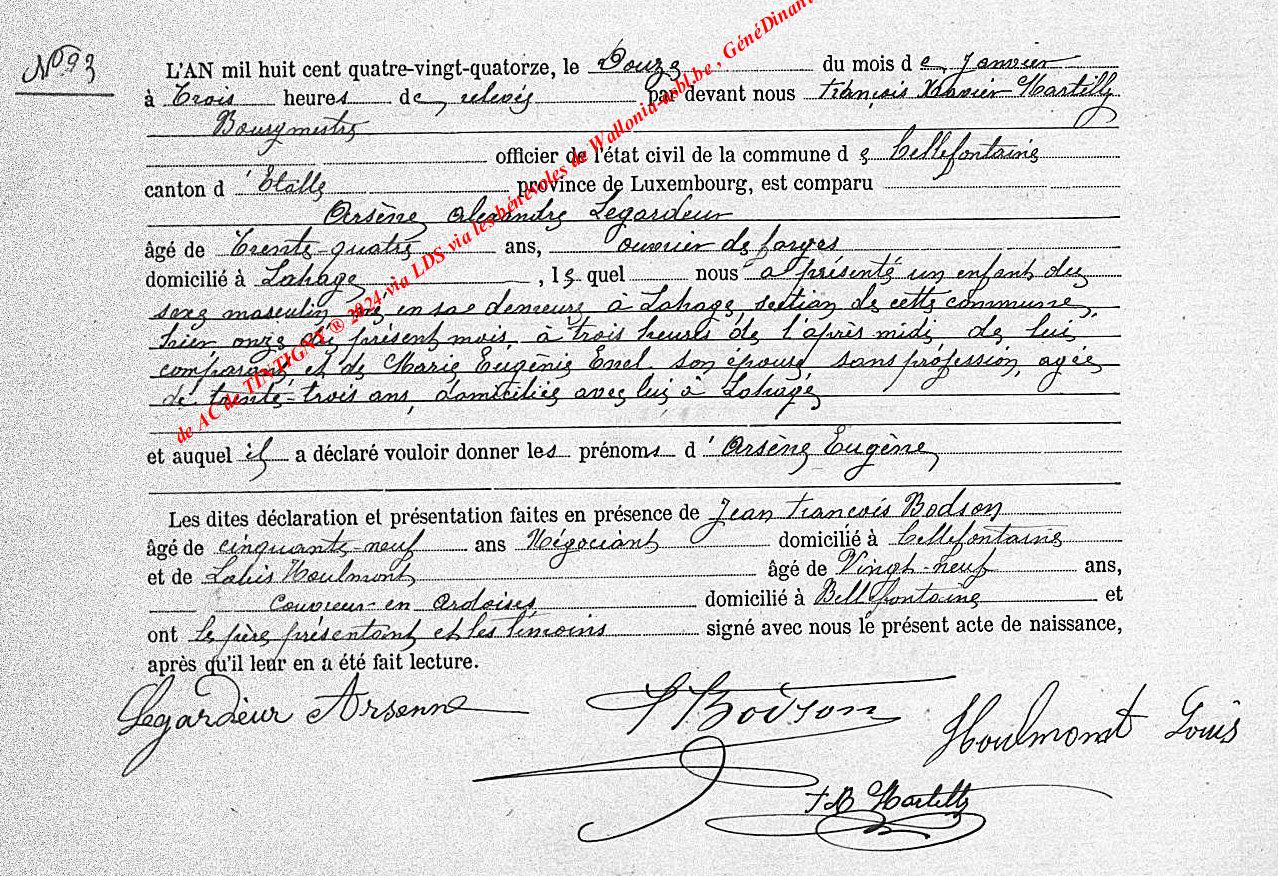 N° 93
L'AN mil huit cent quatre-vingt-quatorze, le Douze du mois de Janvier
à Trois heures de relevée par devant nous François Xavier Martilly
Bourgmestre
officier de l'état civil de la commune de Bellefontaine
canton d'Etalle province de Luxembourg, est comparu
Arsène Alexandre Legardeur
âgé de Trente-quatre ans, ouvrier de forges
domicilié à Lahage, lequel nous a présenté un enfant du
sexe masculin né en sa demeure à Lahage, section de cette commune,
hier onze du présent mois à trois heures de l'après midi, de lui
comparant et de Marie Eugénie Enel son épouse, sans profession, agée
de trente-trois ans, domiciliée avec lui à Lahage
et auquel il a déclaré vouloir donner les prénoms d'Arsène Eugène
Les dites déclaration et présentation faites en présence de Jean François Bodson
âgé de cinquante-neuf ans Négociant domicilié à Bellefontaine
et de Louis Houlmont âgé de Vingt-neuf ans,
Couvreur en ardoises domicilié à Bellefontaine et
ont le père présentant et les témoins signé avec nous le présent acte de naissance,
après qu'il leur en a été fait lecture.
Legardeur Arsenne
Bodson
Houlmont Louis
Martilly
de AC de TINTIGNY ® 2024 via LDS via les bénévoles de Wallonia-asbl.be, GénéDinant